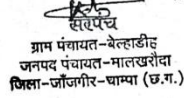 सरपंच
ग्राम पंचायत-बेल्हाडीह
जनपद पंचायत-मालखरौदा
जिला-जाँजगीर-चाम्पा (छ.ग.)